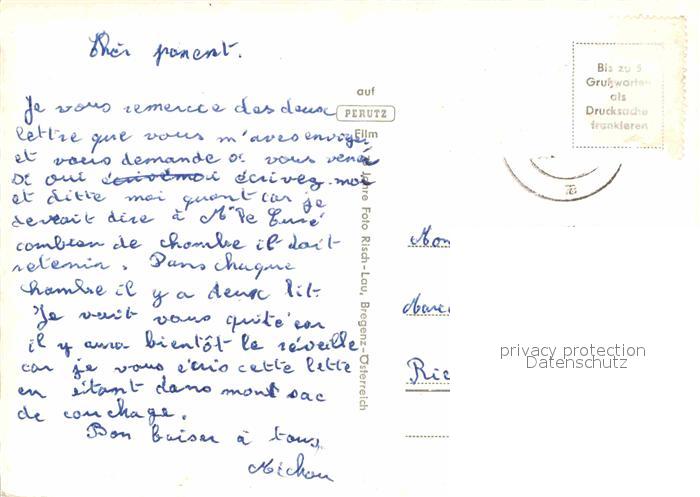 Cher parent.
Je vous remercie des deux
lettre que vous m'aves envoyé,
et vous demande si vous venai
Si oui écrivémoi écrivez-moi
et ditte moi quant car je
devrait dire à Mr le Curé
combien de chambre il doit
retenir. Dans chaque
chambre il y a deux lit.
Je vait vous quité car
il y aura bientôt le réveille
car je vous écris cette lette
en étant dans mont sac
de couchage.
Bon baiser à tous
Michou
auf
PERUTZ
Film
Jahre Foto Risch-Lau, Bregenz-Österreich
Bis zu 5
Grußworten
als
Drucksache
frankieren
Mon
Marc
Ric
privacy protection
Datenschutz